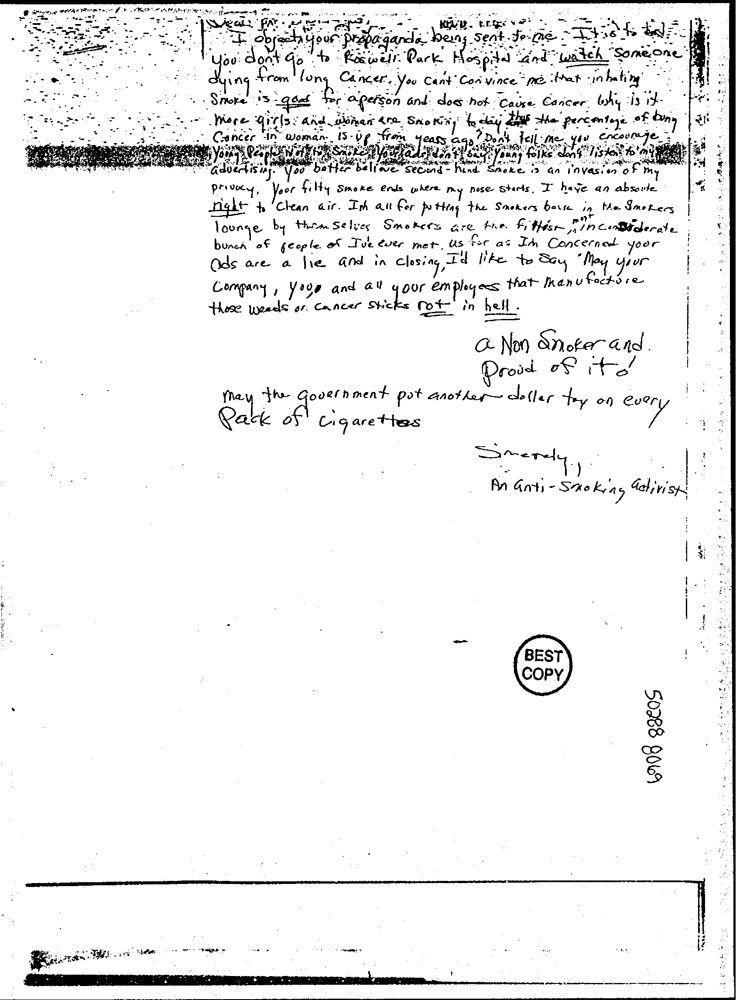 Dear
I object your propaganda being sent to me. It is to bad
you don't go to Roswell Park Hospital and watch someone
dying from lung Cancer. You can't convince me that inhaling
Smoke is good for a person and does not Cause Cancer. Why is it
more girls and woman are smoking today the percentage of lung
Cancer in woman is up from years ago? Don't tell me you encourage
young people Not to Smoke. Your ads don't say young folks don't listen to my
advertising. You better believe second-hand smoke is an invasion of my
privacy. Your filty smoke ends where my nose starts. I have an absolute
right to Clean air. I'm all for putting the Smokers back in the Smokers
lounge by themselves Smokers are the fittest, inconsiderate
bunch of people of I've ever met. As far as I'm Concerned your
Ads are a lie and in closing, I'd like to say "May your
Company, you and all your employees that manufacture
those weeds or cancer sticks rot in hell.
a Non Smoker and
Proud of it!
may the government put another dollar tax on every
Pack of Cigarettes
Sincerely,
An Anti-Smoking Activist
BEST
COPY
50288 8069